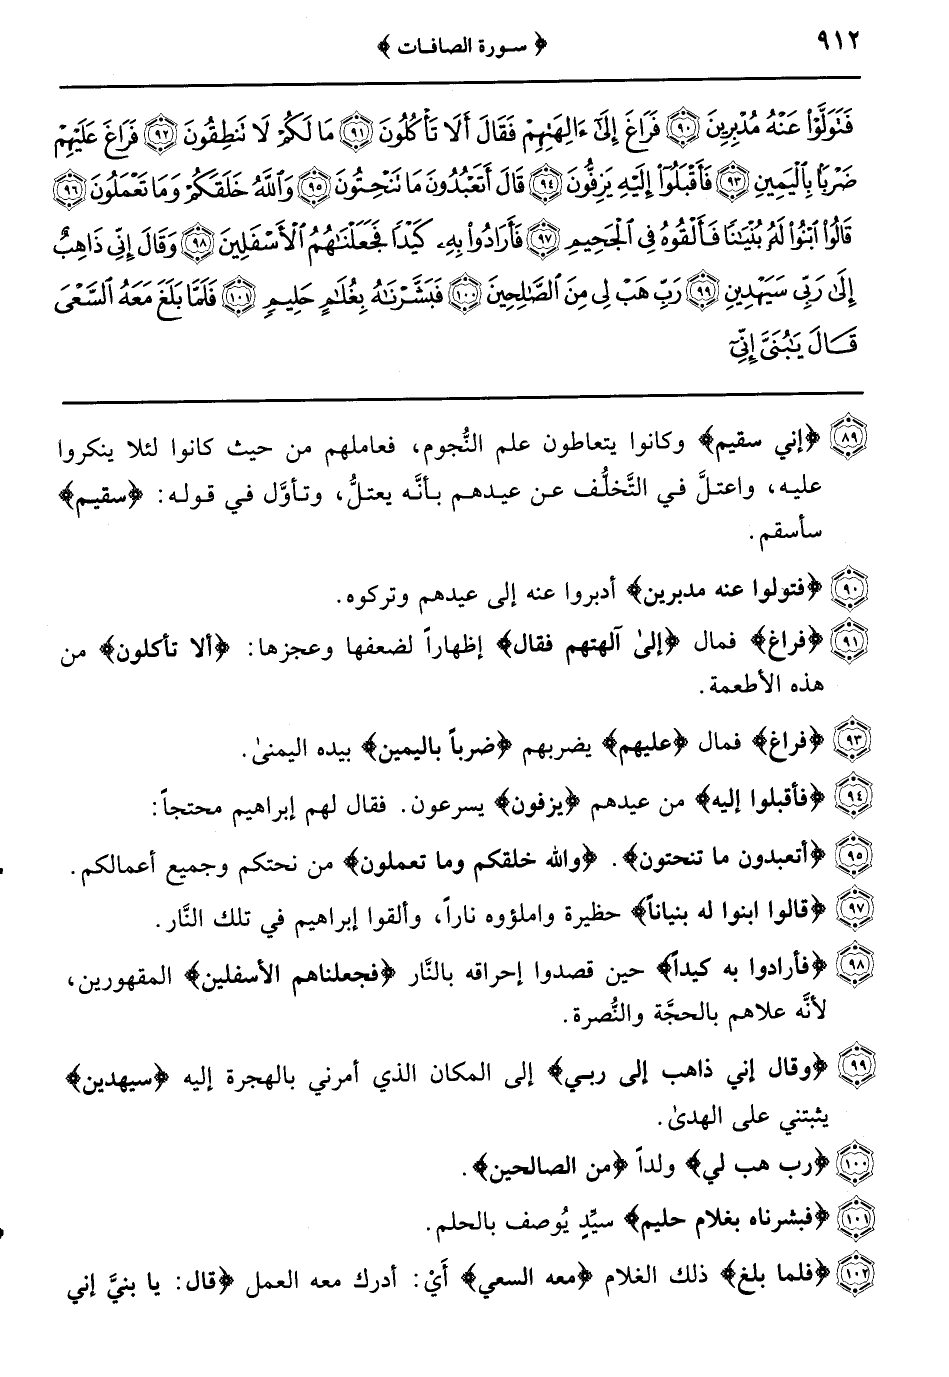 ٩١٢
﴿ سورة الصافات ﴾
فَتَوَلَّوْا۟ عَنْهُ مُدْبِرِينَ ٩٠ فَرَاغَ إِلَىٰٓ ءَالِهَتِهِمْ فَقَالَ أَلَا تَأْكُلُونَ ٩١ مَا لَكُمْ لَا تَنطِقُونَ ٩٢ فَرَاغَ عَلَيْهِمْ
ضَرْبًۢا بِٱلْيَمِينِ ٩٣ فَأَقْبَلُوٓا۟ إِلَيْهِ يَزِفُّونَ ٩٤ قَالَ أَتَعْبُدُونَ مَا تَنْحِتُونَ ٩٥ وَٱللَّهُ خَلَقَكُمْ وَمَا تَعْمَلُونَ ٩٦
قَالُوا۟ ٱبْنُوا۟ لَهُۥ بُنْيَـٰنًا فَأَلْقُوهُ فِى ٱلْجَحِيمِ ٩٧ فَأَرَادُوا۟ بِهِۦ كَيْدًا فَجَعَلْنَـٰهُمُ ٱلْأَسْفَلِينَ ٩٨ وَقَالَ إِنِّى ذَاهِبٌ
إِلَىٰ رَبِّى سَيَهْدِينِ ٩٩ رَبِّ هَبْ لِى مِنَ ٱلصَّـٰلِحِينَ ١٠٠ فَبَشَّرْنَـٰهُ بِغُلَـٰمٍ حَلِيمٍ ١٠١ فَلَمَّا بَلَغَ مَعَهُ ٱلسَّعْىَ
قَالَ يَـٰبُنَىَّ إِنِّىٓ
٨٩ ﴿إني سقيم﴾ وكانوا يتعاطون علم النُّجوم، فعاملهم من حيث كانوا لئلا ينكروا
عليه، واعتلَّ في التَّخلُّف عن عيدهم بأنَّه يعتلُّ، وتأوَّل في قوله: ﴿سقيم﴾
سأسقم.
٩٠ ﴿فتولوا عنه مدبرين﴾ أدبروا عنه إلى عيدهم وتركوه.
٩١ ﴿فراغ﴾ فمال ﴿إلىٰ آلهتهم فقال﴾ إظهاراً لضعفها وعجزها: ﴿ألا تأكلون﴾ من
هذه الأطعمة.
٩٣ ﴿فراغ﴾ فمال ﴿عليهم﴾ يضربهم ﴿ضرباً باليمين﴾ بيده اليمنىٰ.
٩٤ ﴿فأقبلوا إليه﴾ من عيدهم ﴿يزفون﴾ يسرعون. فقال لهم إبراهيم محتجاً:
٩٥ ﴿أتعبدون ما تنحتون﴾. ﴿والله خلقكم وما تعملون﴾ من نحتكم وجميع أعمالكم.
٩٧ ﴿قالوا ابنوا له بنياناً﴾ حظيرة واملؤوه ناراً، وألقوا إبراهيم في تلك النَّار.
٩٨ ﴿فأرادوا به كيداً﴾ حين قصدوا إحراقه بالنَّار ﴿فجعلناهم الأسفلين﴾ المقهورين،
لأنَّه علاهم بالحجَّة والنُّصرة.
٩٩ ﴿وقال إني ذاهب إلى ربي﴾ إلى المكان الذي أمرني بالهجرة إليه ﴿سيهدين﴾
يثبتني على الهدىٰ.
١٠٠ ﴿رب هب لي﴾ ولداً ﴿من الصالحين﴾.
١٠١ ﴿فبشرناه بغلام حليم﴾ سيِّدٍ يُوصف بالحلم.
١٠٢ ﴿فلما بلغ﴾ ذلك الغلام ﴿معه السعي﴾ أَيْ: أدرك معه العمل ﴿قال: يا بنيَّ إني